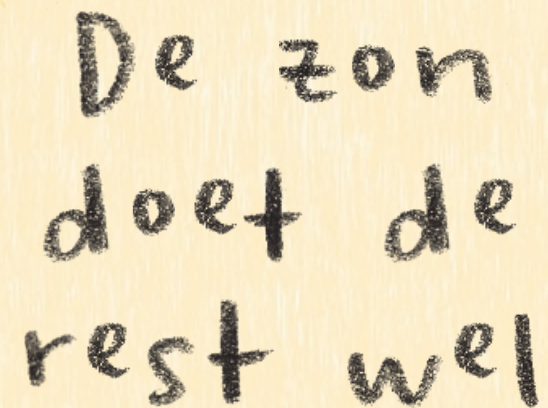 De zon
doet de
rest wel